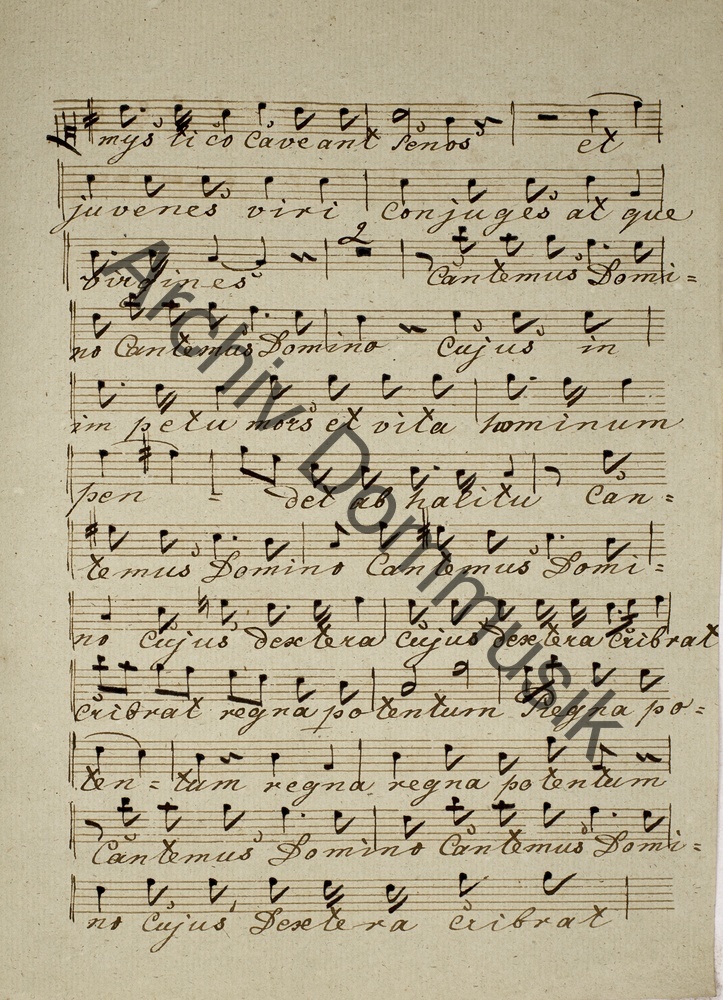 mystico Caveant Senos et
juvenes viri Conjuges at que
2
virgines Cantemus Domi=
no Cantemus Domino Cujus in
im petu mors et vita hominum
pen - - det ab halitu Can=
temus Domino Cantemus Domi=
no Cujus dextera Cujus dextera Cribrat
Cribrat regna potentum Regna po=
ten = tum regna regna potentum
Cantemus Domino Cantemus Domi=
no Cujus Dextera Cribrat
Archiv Dommusik